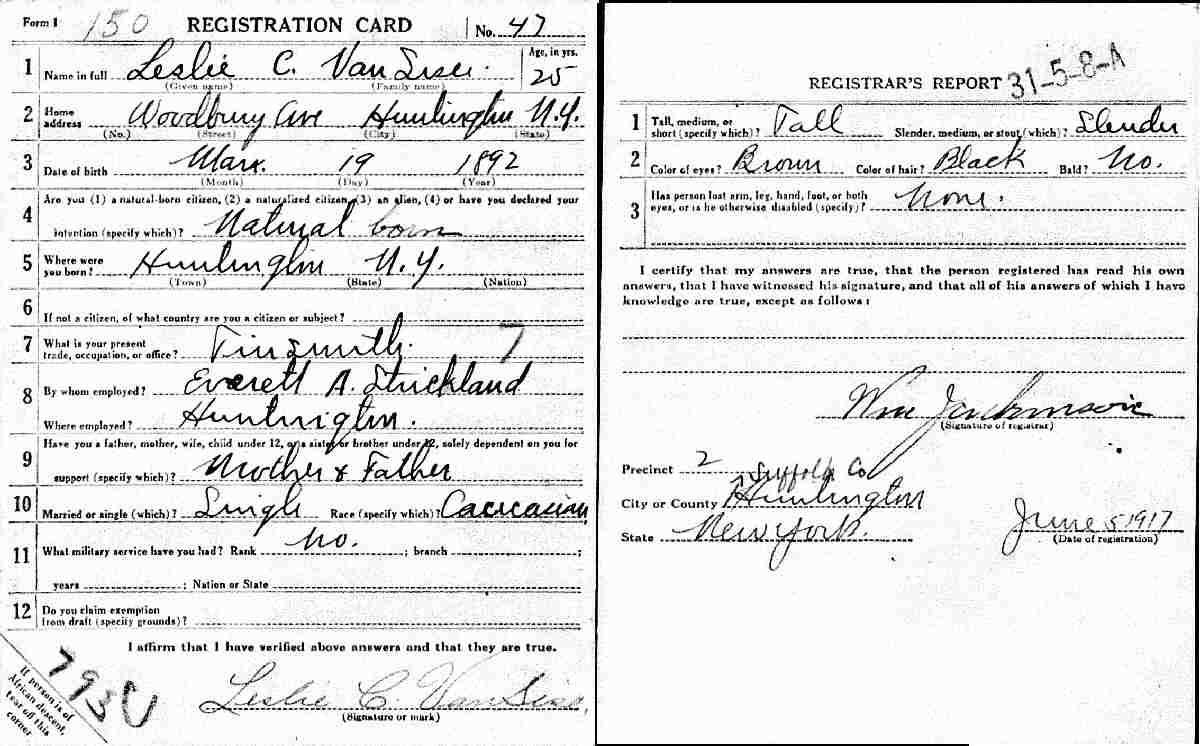 Form 1 150 REGISTRATION CARD No. 47
1 Name in full Leslie C. Van Sise. Age, in yrs. 25
(Given name) (Family name)
2 Home address Woodbury Ave Huntington N.Y.
(No.) (Street) (City) (State)
3 Date of birth Mar. 19 1892
(Month) (Day) (Year)
4 Are you (1) a natural-born citizen, (2) a naturalized citizen, (3) an alien, (4) or have you declared your
intention (specify which)? Natural born
5 Where were you born? Huntington N.Y.
(Town) (State) (Nation)
6 If not a citizen, of what country are you a citizen or subject?
7 What is your present trade, occupation, or office? Tinsmith. 7
8 By whom employed? Everett A. Strickland
Where employed? Huntington.
9 Have you a father, mother, wife, child under 12, or a sister or brother under 12, solely dependent on you for
support (specify which)? Mother & Father
10 Married or single (which)? Single Race (specify which)? Caucasian
11 What military service have you had? Rank No. ; branch ;
years ; Nation or State
12 Do you claim exemption from draft (specify grounds)?
I affirm that I have verified above answers and that they are true.
Leslie C. Van Sise,
(Signature or mark)
If person is of
African descent,
tear off this
corner
793
REGISTRAR'S REPORT 31-5-8-A
1 Tall, medium, or short (specify which)? Tall Slender, medium, or stout (which)? Slender
2 Color of eyes? Brown Color of hair? Black Bald? No.
3 Has person lost arm, leg, hand, foot, or both
eyes, or is he otherwise disabled (specify)? None.
I certify that my answers are true, that the person registered has read his own
answers, that I have witnessed his signature, and that all of his answers of which I have
knowledge are true, except as follows:
Wm
(Signature of registrar)
Precinct 2 Suffolk Co
City or County Huntington
State New York.
June 5 1917
(Date of registration)